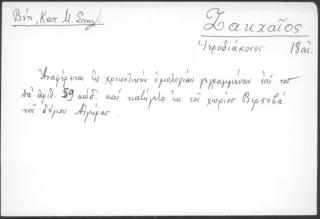 Βέη, Κατ. Μ. Σπηλ.
Ζακχαῖος
Ἱεροδιάκονος 18 αἰ.
Ἀναφέρεται εἰς χρεωστικὴν ὁμολογίαν γεγραμμένην ἐπὶ τοῦ
ὑπ' ἀριθ. 59 κώδ. καὶ κατήγετο ἐκ τοῦ χωρίου Βερσοβᾶ
τοῦ δήμου Αἰγείρας.